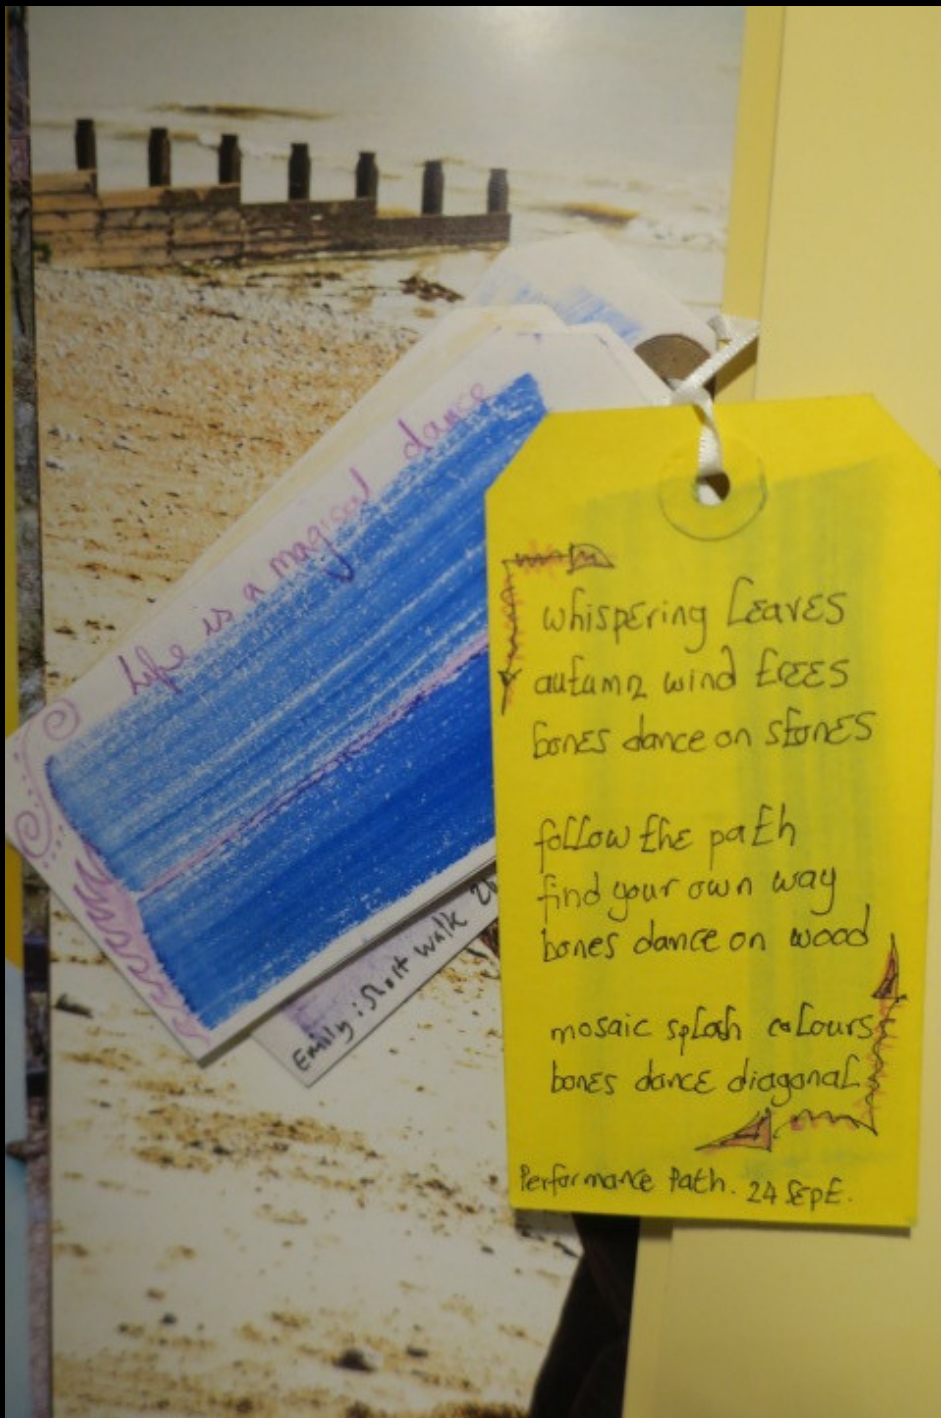 Life is a magical dance
Emily: Short walk
whispering leaves
autumn wind trees
bones dance on stones
follow the path
find your own way
bones dance on wood
mosaic splash colours
bones dance diagonal
Performance Path. 24 Sept.